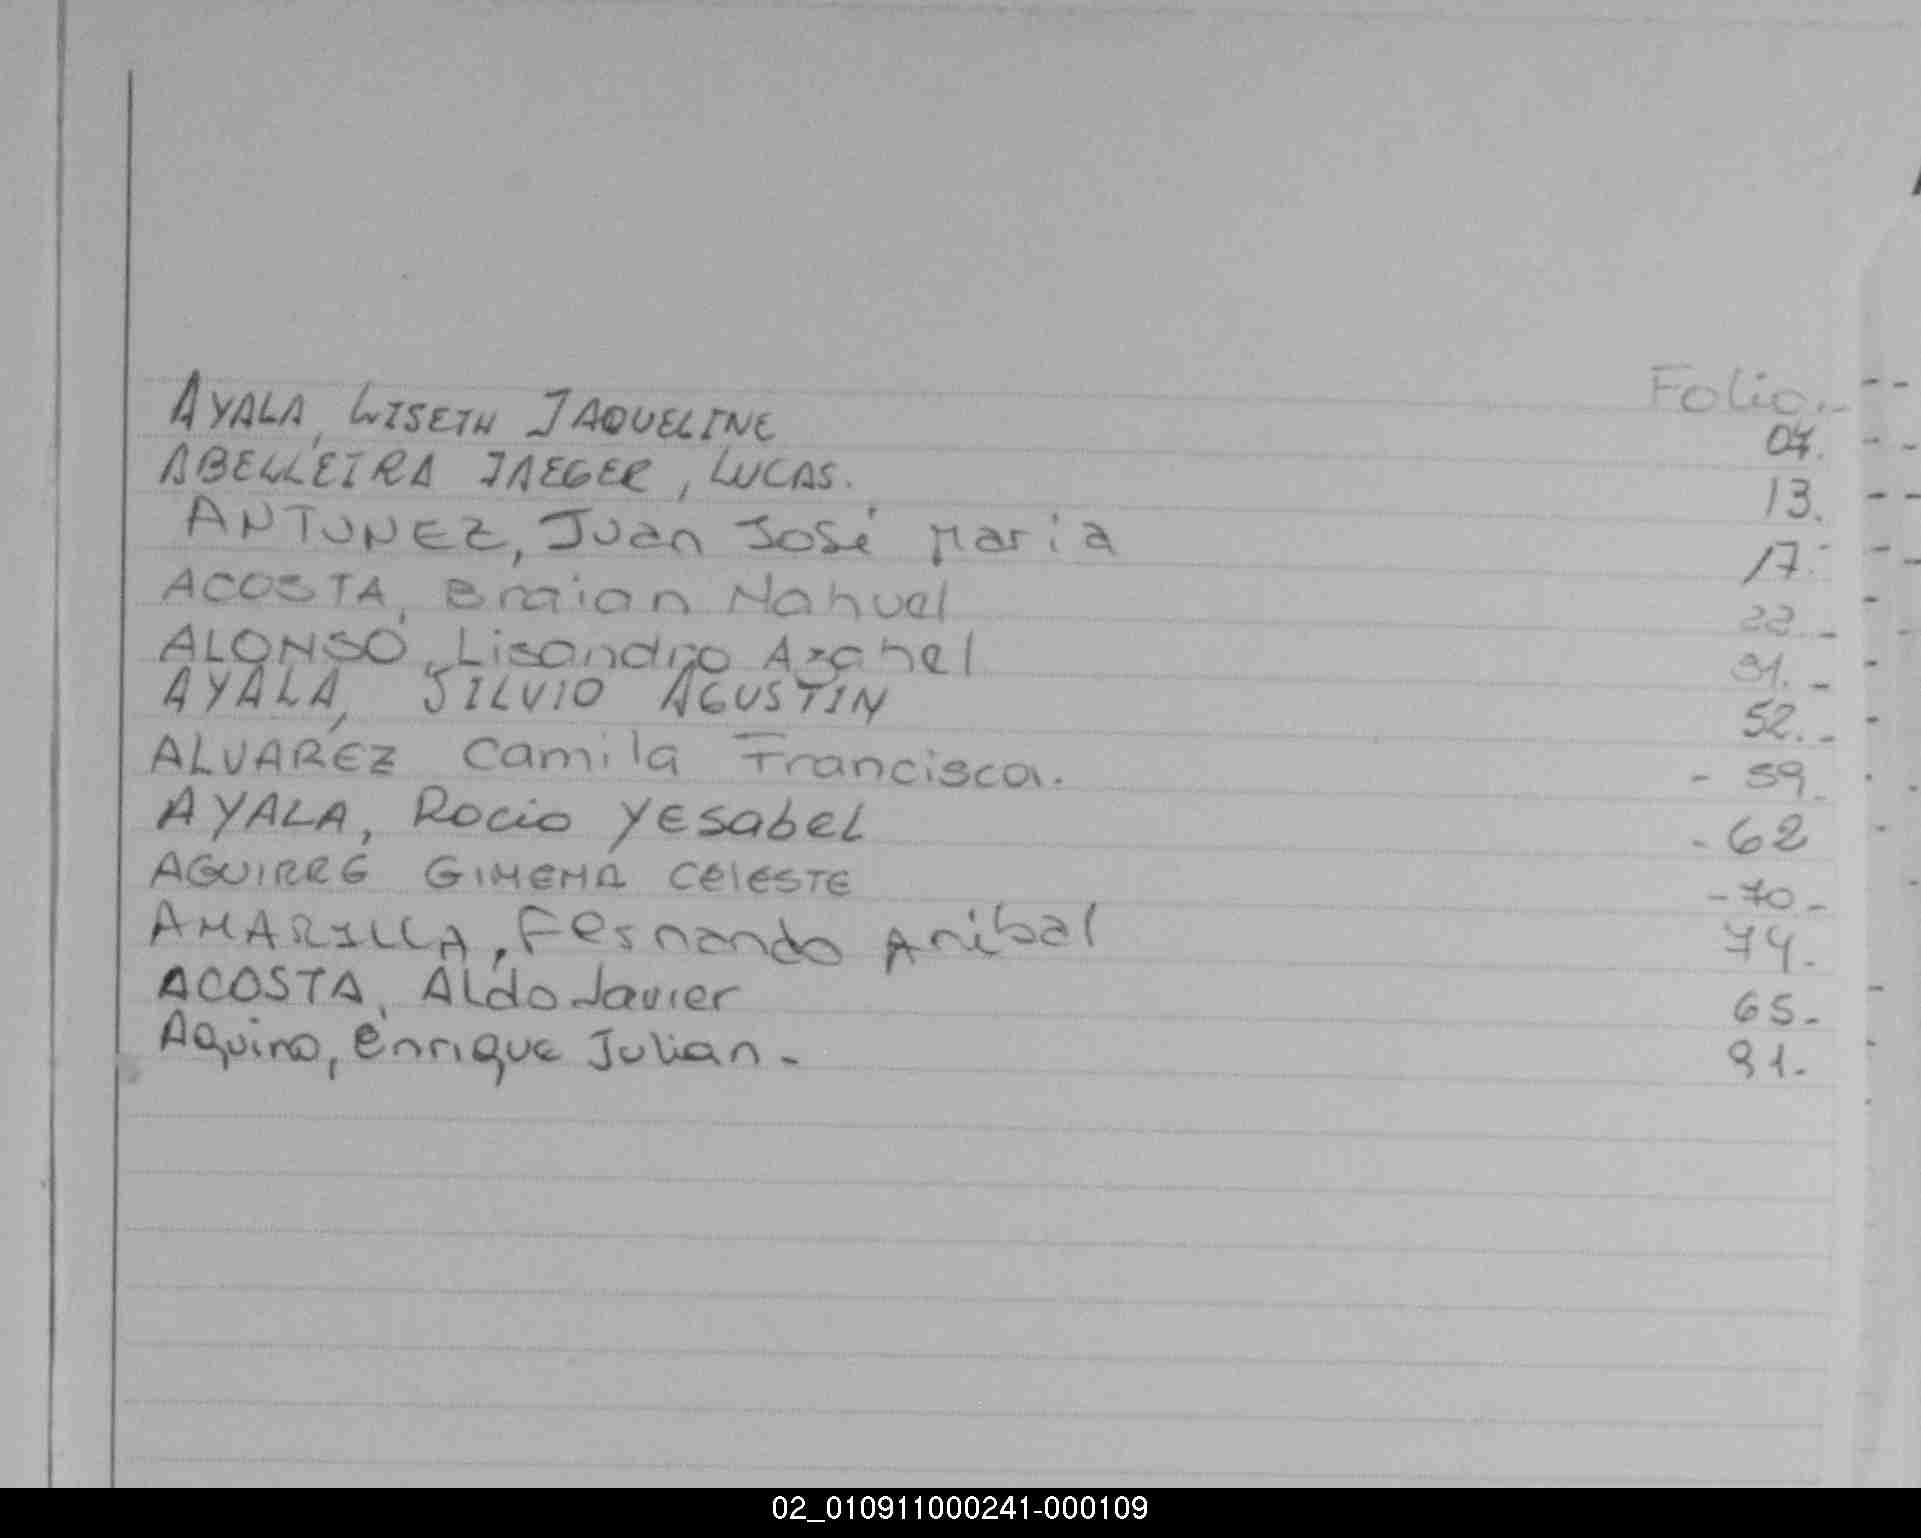 Folio.-
AYALA, LISETH JAQUELINE 07.
ABELLEIRA JAEGER, LUCAS. 13.
ANTUNEZ, Juan José Maria 17.
ACOSTA, Braian Nahuel 22.-
ALONSO, Lisandro Azahel 31.-
AYALA, SILVIO AGUSTIN 52.-
ALVAREZ Camila Francisca. - 59.
AYALA, Rocio YESabeL - 62
AGUIRRE GIMENA CELESTE - 70 -
AMARILLA, Fernando Anibal 74.
ACOSTA, ALdo Javier 65.-
Aquino, Enrique Julian.- 91.
02_010911000241-000109